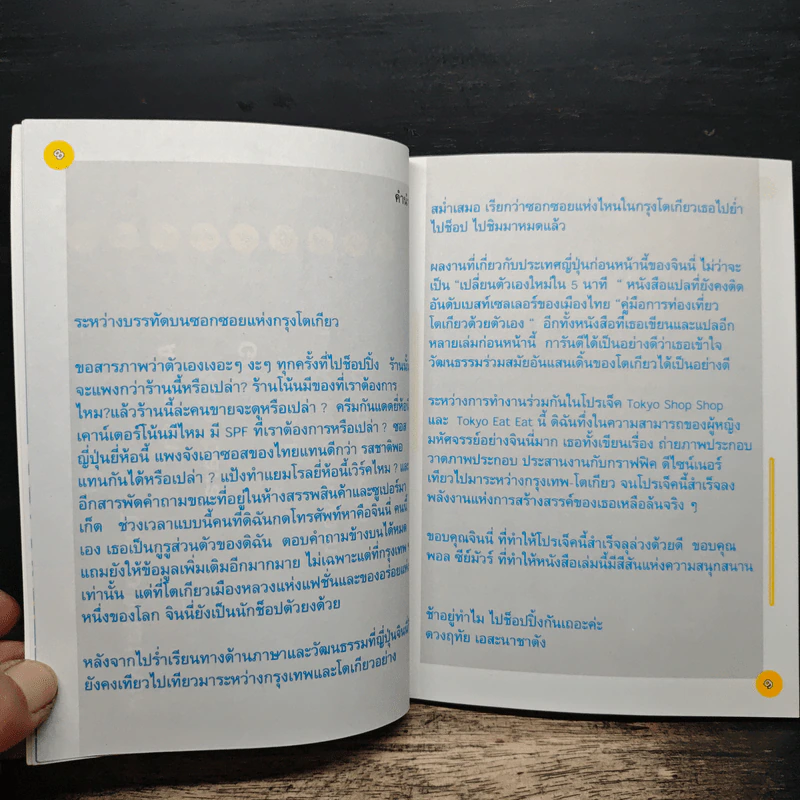 คำนำ
ระหว่างบรรทัดบนซอกซอยแห่งกรุงโตเกียว
ขอสารภาพว่าตัวเองเงอะๆ งะๆ ทุกครั้งที่ไปช็อปปิ้ง ร้านนั้น
จะแพงกว่าร้านนี้หรือเปล่า? ร้านโน้นมีของที่เราต้องการ
ไหม?แล้วร้านนี้ล่ะคนขายจะดุหรือเปล่า ? ครีมกันแดดยี่ห้อนี้
เคาน์เตอร์โน้นมีไหม มี SPF ที่เราต้องการหรือเปล่า ? ซอส
ญี่ปุ่นยี่ห้อนี้ แพงจังเอาซอสของไทยแทนดีกว่า รสชาติพอ
แทนกันได้หรือเปล่า ? แป้งทำแยมโรลยี่ห้อนี้เวิร์คไหม ? และ
อีกสารพัดคำถามขณะที่อยู่ในห้างสรรพสินค้าและซูเปอร์มา
เก็ต ช่วงเวลาแบบนี้คนที่ดิฉันกดโทรศัพท์หาคือจินนี่ คนนี้
เอง เธอเป็นกูรูส่วนตัวของดิฉัน ตอบคำถามข้างบนได้หมด
แถมยังให้ข้อมูลเพิ่มเติมอีกมากมาย ไม่เฉพาะแต่ที่กรุงเทพ
เท่านั้น แต่ที่โตเกียวเมืองหลวงแห่งแฟชั่นและของอร่อยแห่ง
หนึ่งของโลก จินนี่ยังเป็นนักช็อปตัวยงด้วย
หลังจากไปร่ำเรียนทางด้านภาษาและวัฒนธรรมที่ญี่ปุ่นจินนี่
ยังคงเทียวไปเทียวมาระหว่างกรุงเทพและโตเกียวอย่าง
สม่ำเสมอ เรียกว่าซอกซอยแห่งไหนในกรุงโตเกียวเธอไปย่ำ
ไปช็อป ไปชิมมาหมดแล้ว
ผลงานที่เกี่ยวกับประเทศญี่ปุ่นก่อนหน้านี้ของจินนี่ ไม่ว่าจะ
เป็น "เปลี่ยนตัวเองใหม่ใน 5 นาที " หนังสือแปลที่ยังคงติด
อันดับเบสท์เซลเลอร์ของเมืองไทย "คู่มือการท่องเที่ยว
โตเกียวด้วยตัวเอง " อีกทั้งหนังสือที่เธอเขียนและแปลอีก
หลายเล่มก่อนหน้านี้ การันตีได้เป็นอย่างดีว่าเธอเข้าใจ
วัฒนธรรมร่วมสมัยอันแสนเต้นของโตเกียวได้เป็นอย่างดี
ระหว่างการทำงานร่วมกันในโปรเจ็ค Tokyo Shop Shop
และ Tokyo Eat Eat นี้ ดิฉันทึ่งในความสามารถของผู้หญิง
มหัศจรรย์อย่างจินนี่มาก เธอทั้งเขียนเรื่อง ถ่ายภาพประกอบ
วาดภาพประกอบ ประสานงานกับกราฟฟิค ดีไซน์เนอร์
เทียวไปมาระหว่างกรุงเทพ-โตเกียว จนโปรเจ็คนี้สำเร็จลง
พลังงานแห่งการสร้างสรรค์ของเธอเหลือล้นจริง ๆ
ขอบคุณจินนี่ ที่ทำให้โปรเจ็คนี้สำเร็จลุล่วงด้วยดี ขอบคุณ
พอล ซีย์มัวร์ ที่ทำให้หนังสือเล่มนี้มีสีสันแห่งความสนุกสนาน
ช้าอยู่ทำไม ไปช็อปปิ้งกันเถอะค่ะ
ดวงฤทัย เอสะนาชาตัง